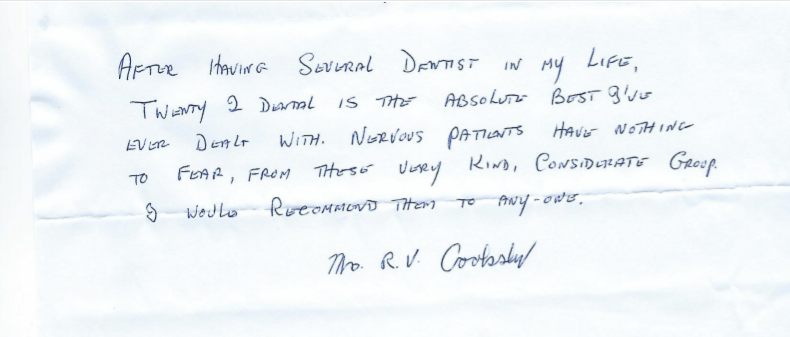 AFTER HAVING SEVERAL DENTIST IN MY LIFE,
TWENTY 2 DENTAL IS THE ABSOLUTE BEST I'VE
EVER DEALT WITH. NERVOUS PATIENTS HAVE NOTHING
TO FEAR, FROM THESE VERY KIND, CONSIDERATE GROUP.
I WOULD RECOMMEND THEM TO ANY-ONE.
R.V.